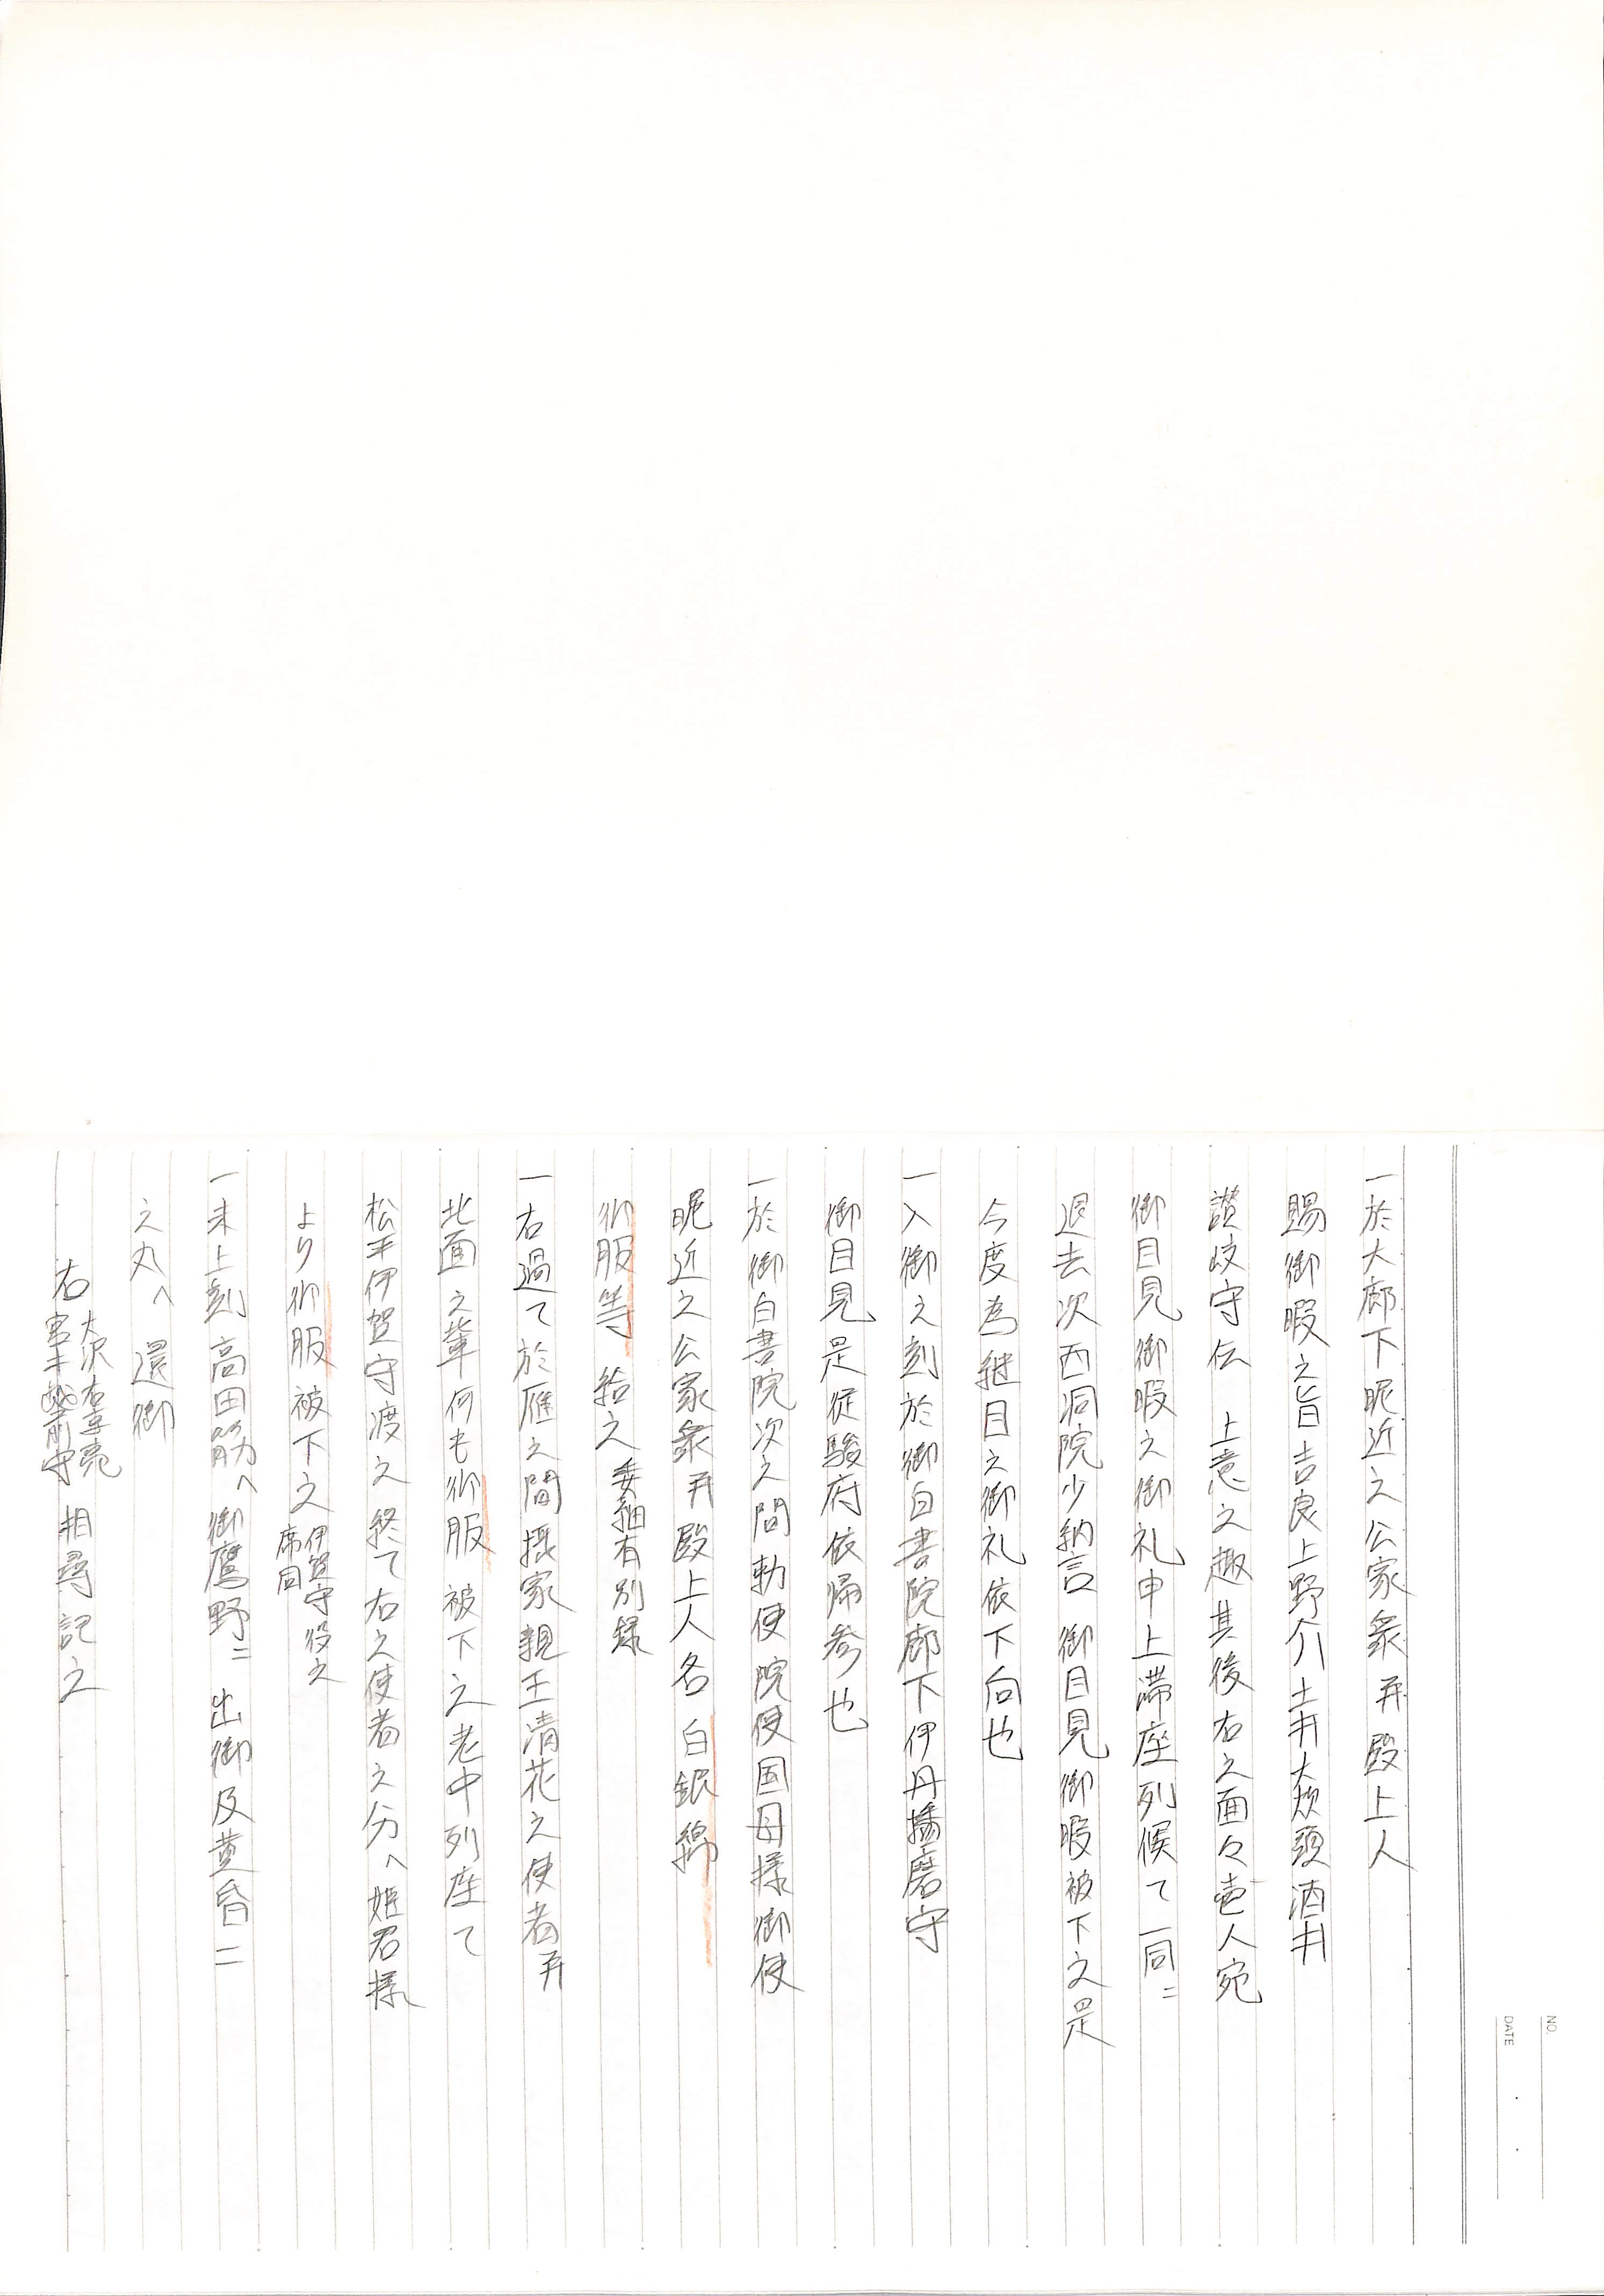 NO.
DATE
一於大廊下昵近之公家衆并殿上人
賜御暇之旨吉良上野介土井大炊頭酒井
讃岐守伝　上意之趣其後右之面々壱人宛
御目見御暇之御礼申上滞座列候て一同ニ
退去次西洞院少納言　御目見御暇被下之是
今度為継目之御礼依下向也
一入御之刻於御白書院廊下伊丹播磨守
御目見是従駿府依帰参也
一於御白書院次之間勅使院使国母様御使
昵近之公家衆并殿上人各白銀綿
御服等　給之　委細有別録
一右過て於雁之間摂家親王清花之使者并
北面之輩何も御服被下之老中列座て
松平伊賀守渡之終て右之使者之分へ姫君様
より御服被下之　伊賀守役之
席同
一未上刻高田筋へ御鷹野ニ　出御及黄昏ニ
之丸へ　還御
右　大沢右京亮
吉木越前守　相尋記之